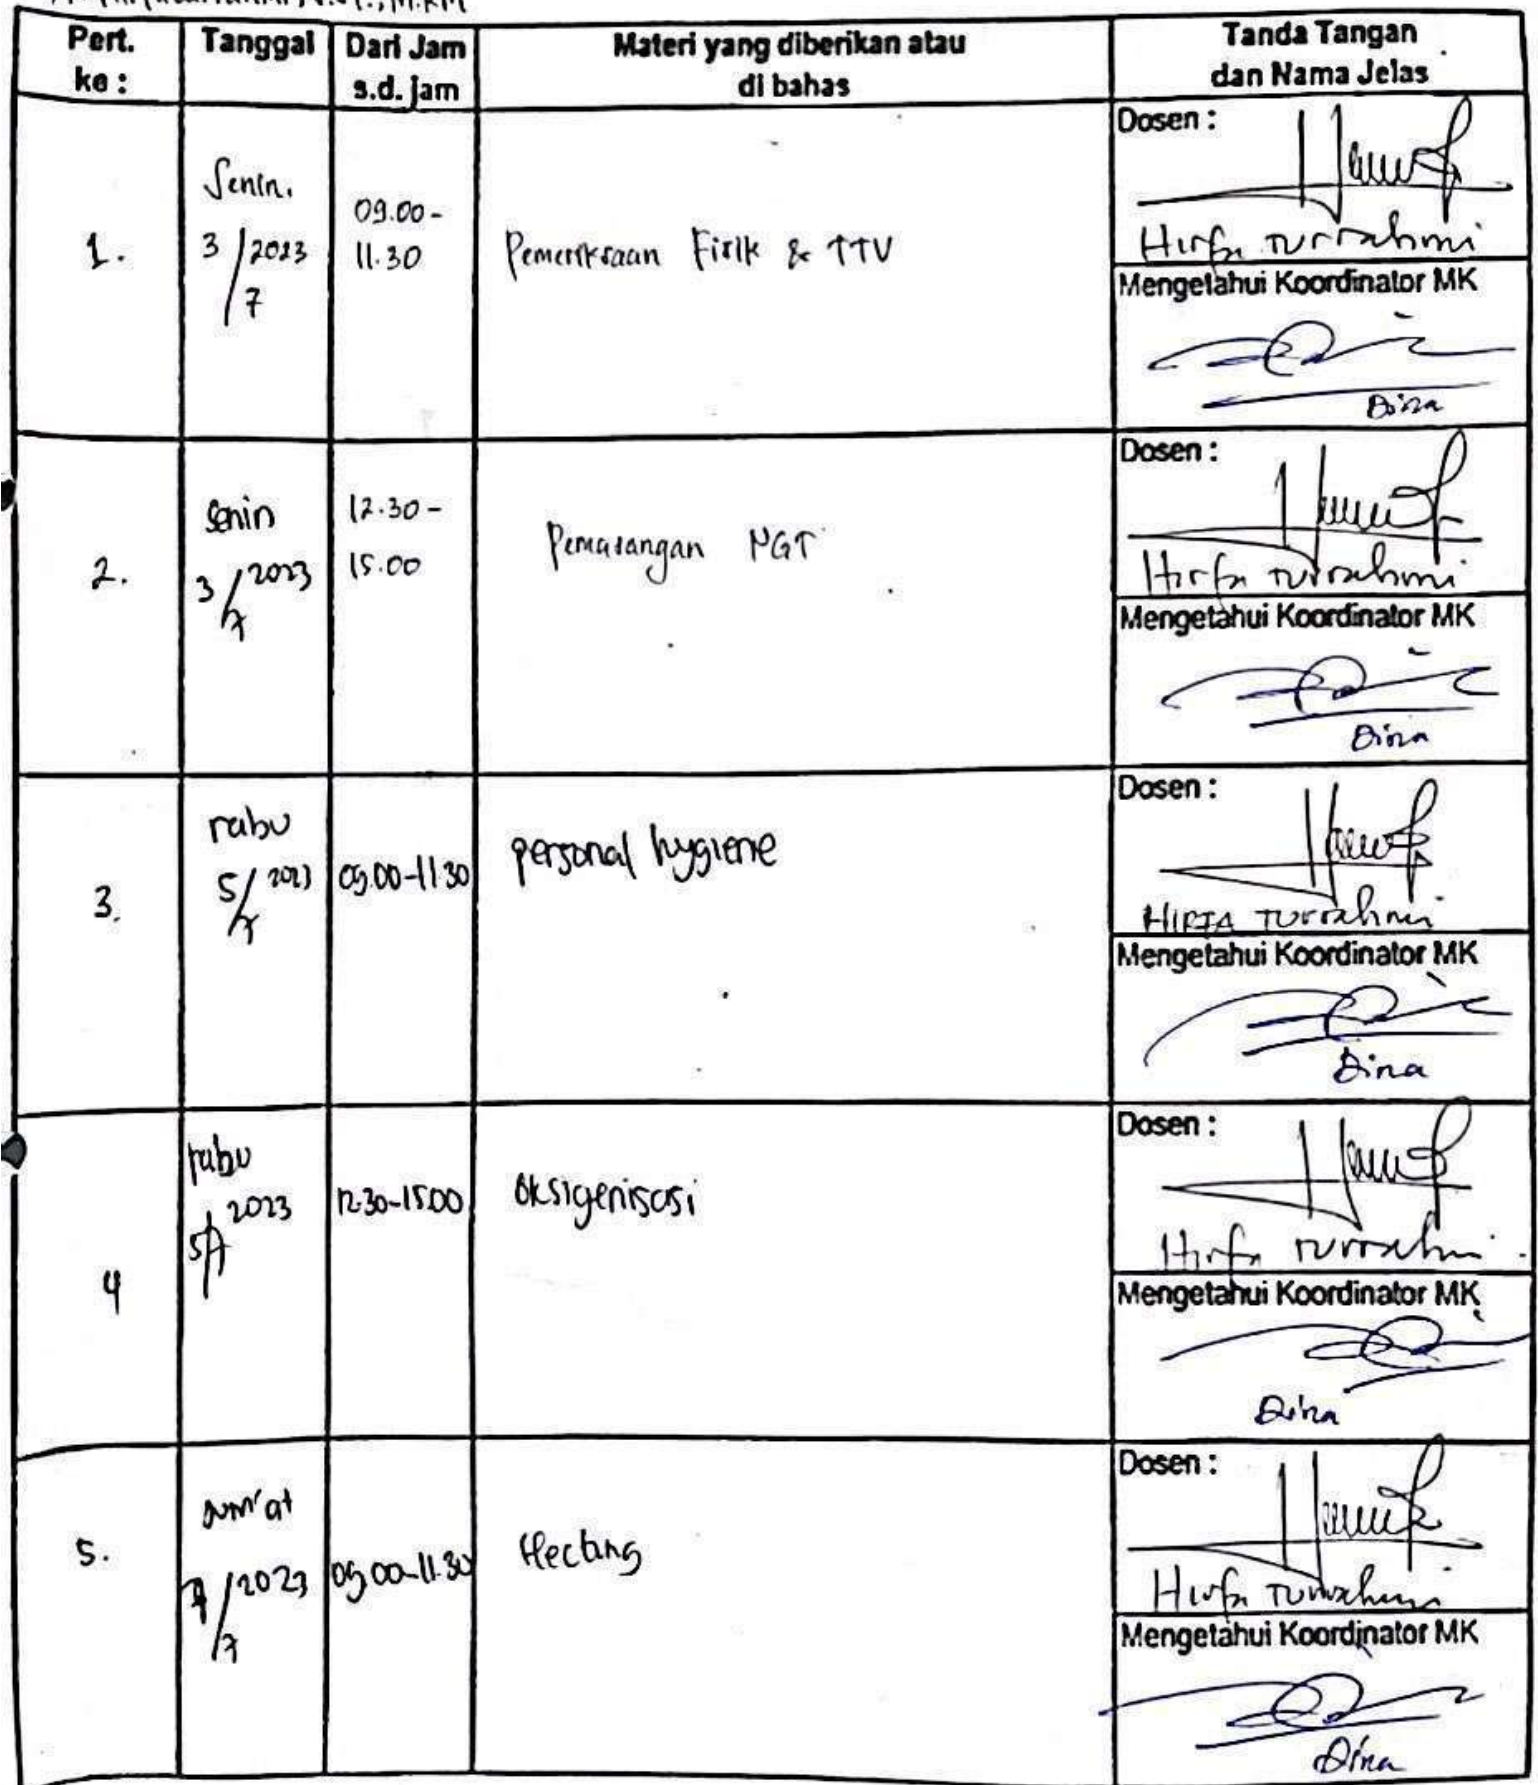 Pert. ke :
Tanggal
Dari Jam s.d. jam
Materi yang diberikan atau di bahas
Tanda Tangan dan Nama Jelas
1.
Senin.
3/7 2023
09.00 -
11.30
Pemeriksaan Fisik & TTV
Dosen :
Hirfa Turrahmi
Mengetahui Koordinator MK
Dina
2.
Senin
3/7 2023
12.30 -
15.00
Pemasangan NGT
Dosen :
Hirfa Turrahmi
Mengetahui Koordinator MK
Dina
3.
rabu
5/7 2023
09.00-11.30
personal hygiene
Dosen :
HIRFA Turrahmi
Mengetahui Koordinator MK
Dina
4
rabu
5/7 2023
12.30-15.00
Oksigenisasi
Dosen :
Hirfa Turrahmi
Mengetahui Koordinator MK
Dina
5.
Jum'at
7/7 2023
09.00-11.30
Hecting
Dosen :
Hirfa Turrahmi
Mengetahui Koordinator MK
Dina